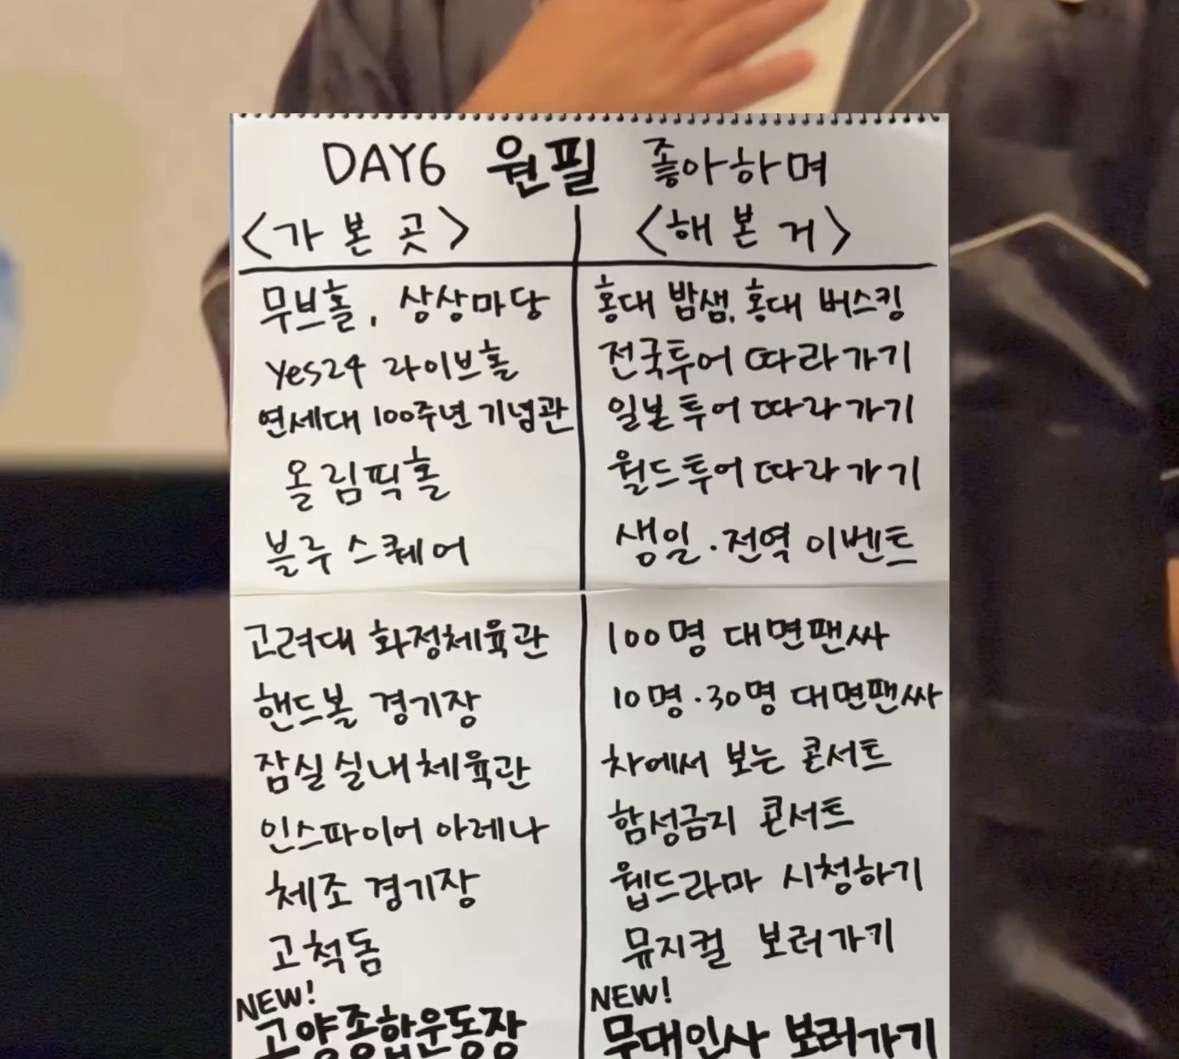 DAY6 원필 좋아하며
<가 본 곳>
<해 본 거>
무브홀, 상상마당
홍대 밤샘, 홍대 버스킹
Yes24 라이브홀
전국투어 따라가기
연세대 100주년 기념관
일본투어 따라가기
올림픽홀
월드투어 따라가기
블루스퀘어
생일·전역 이벤트
고려대 화정체육관
100명 대면팬싸
핸드볼 경기장
10명·30명 대면팬싸
잠실실내체육관
차에서 보는 콘서트
인스파이어 아레나
함성금지 콘서트
체조 경기장
웹드라마 시청하기
고척돔
뮤지컬 보러가기
NEW!
고양종합운동장
NEW!
무대인사 보러가기